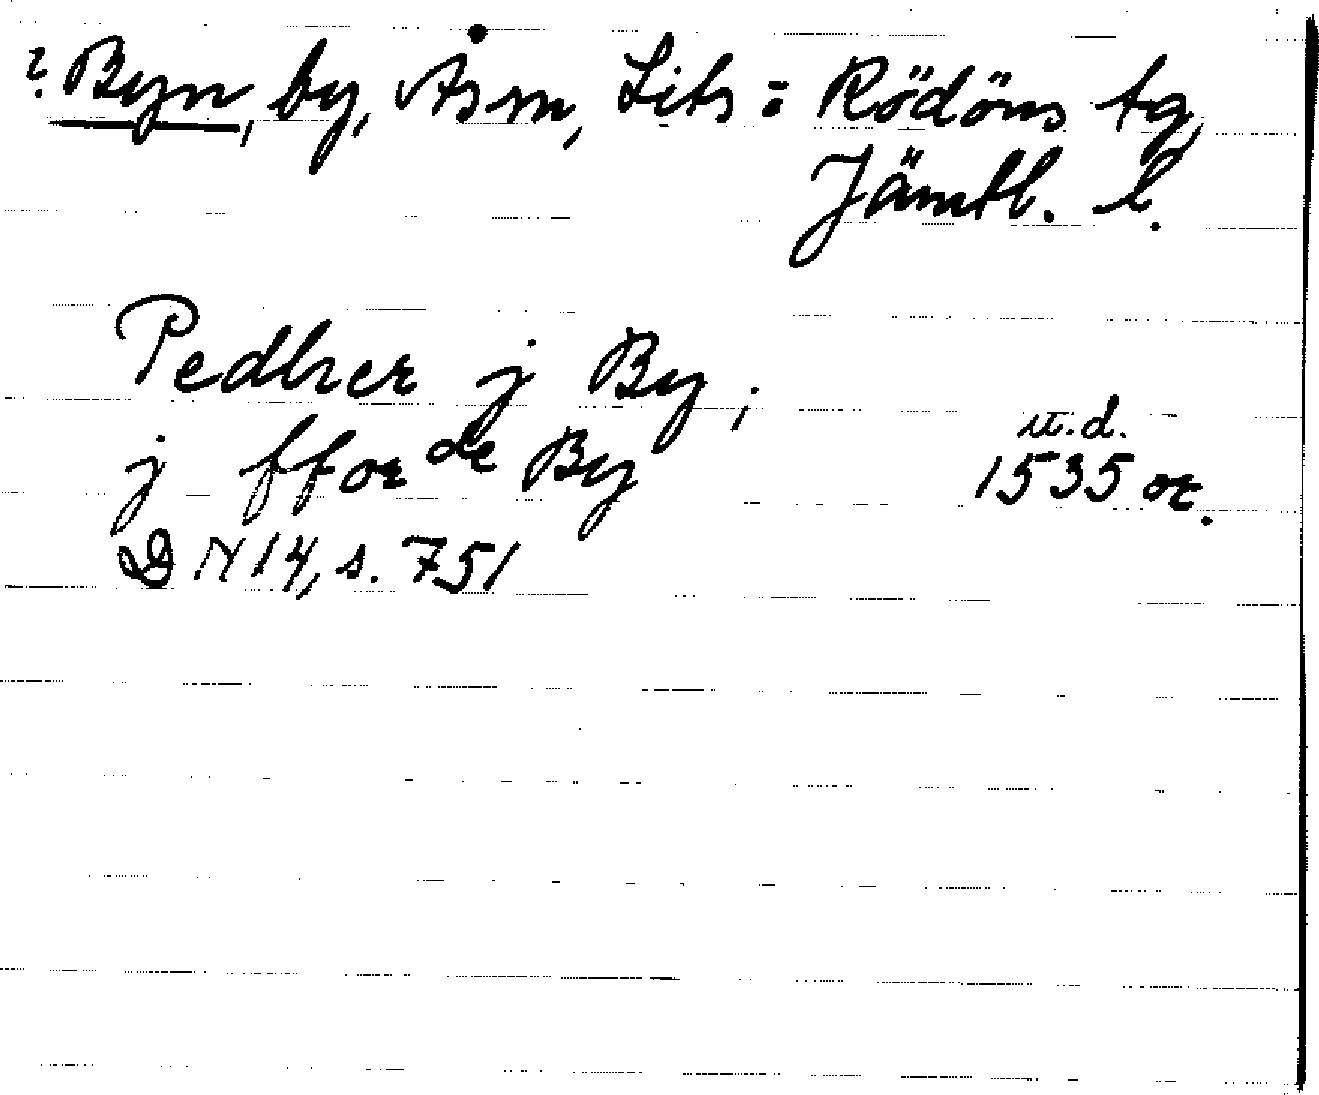 ? Byn, by, Ås sn, Lits o Rödöns tg,
Jämtl. l.
Pedher j By;
j fforde By
u.d.
1535 or.
DN 14, s. 751